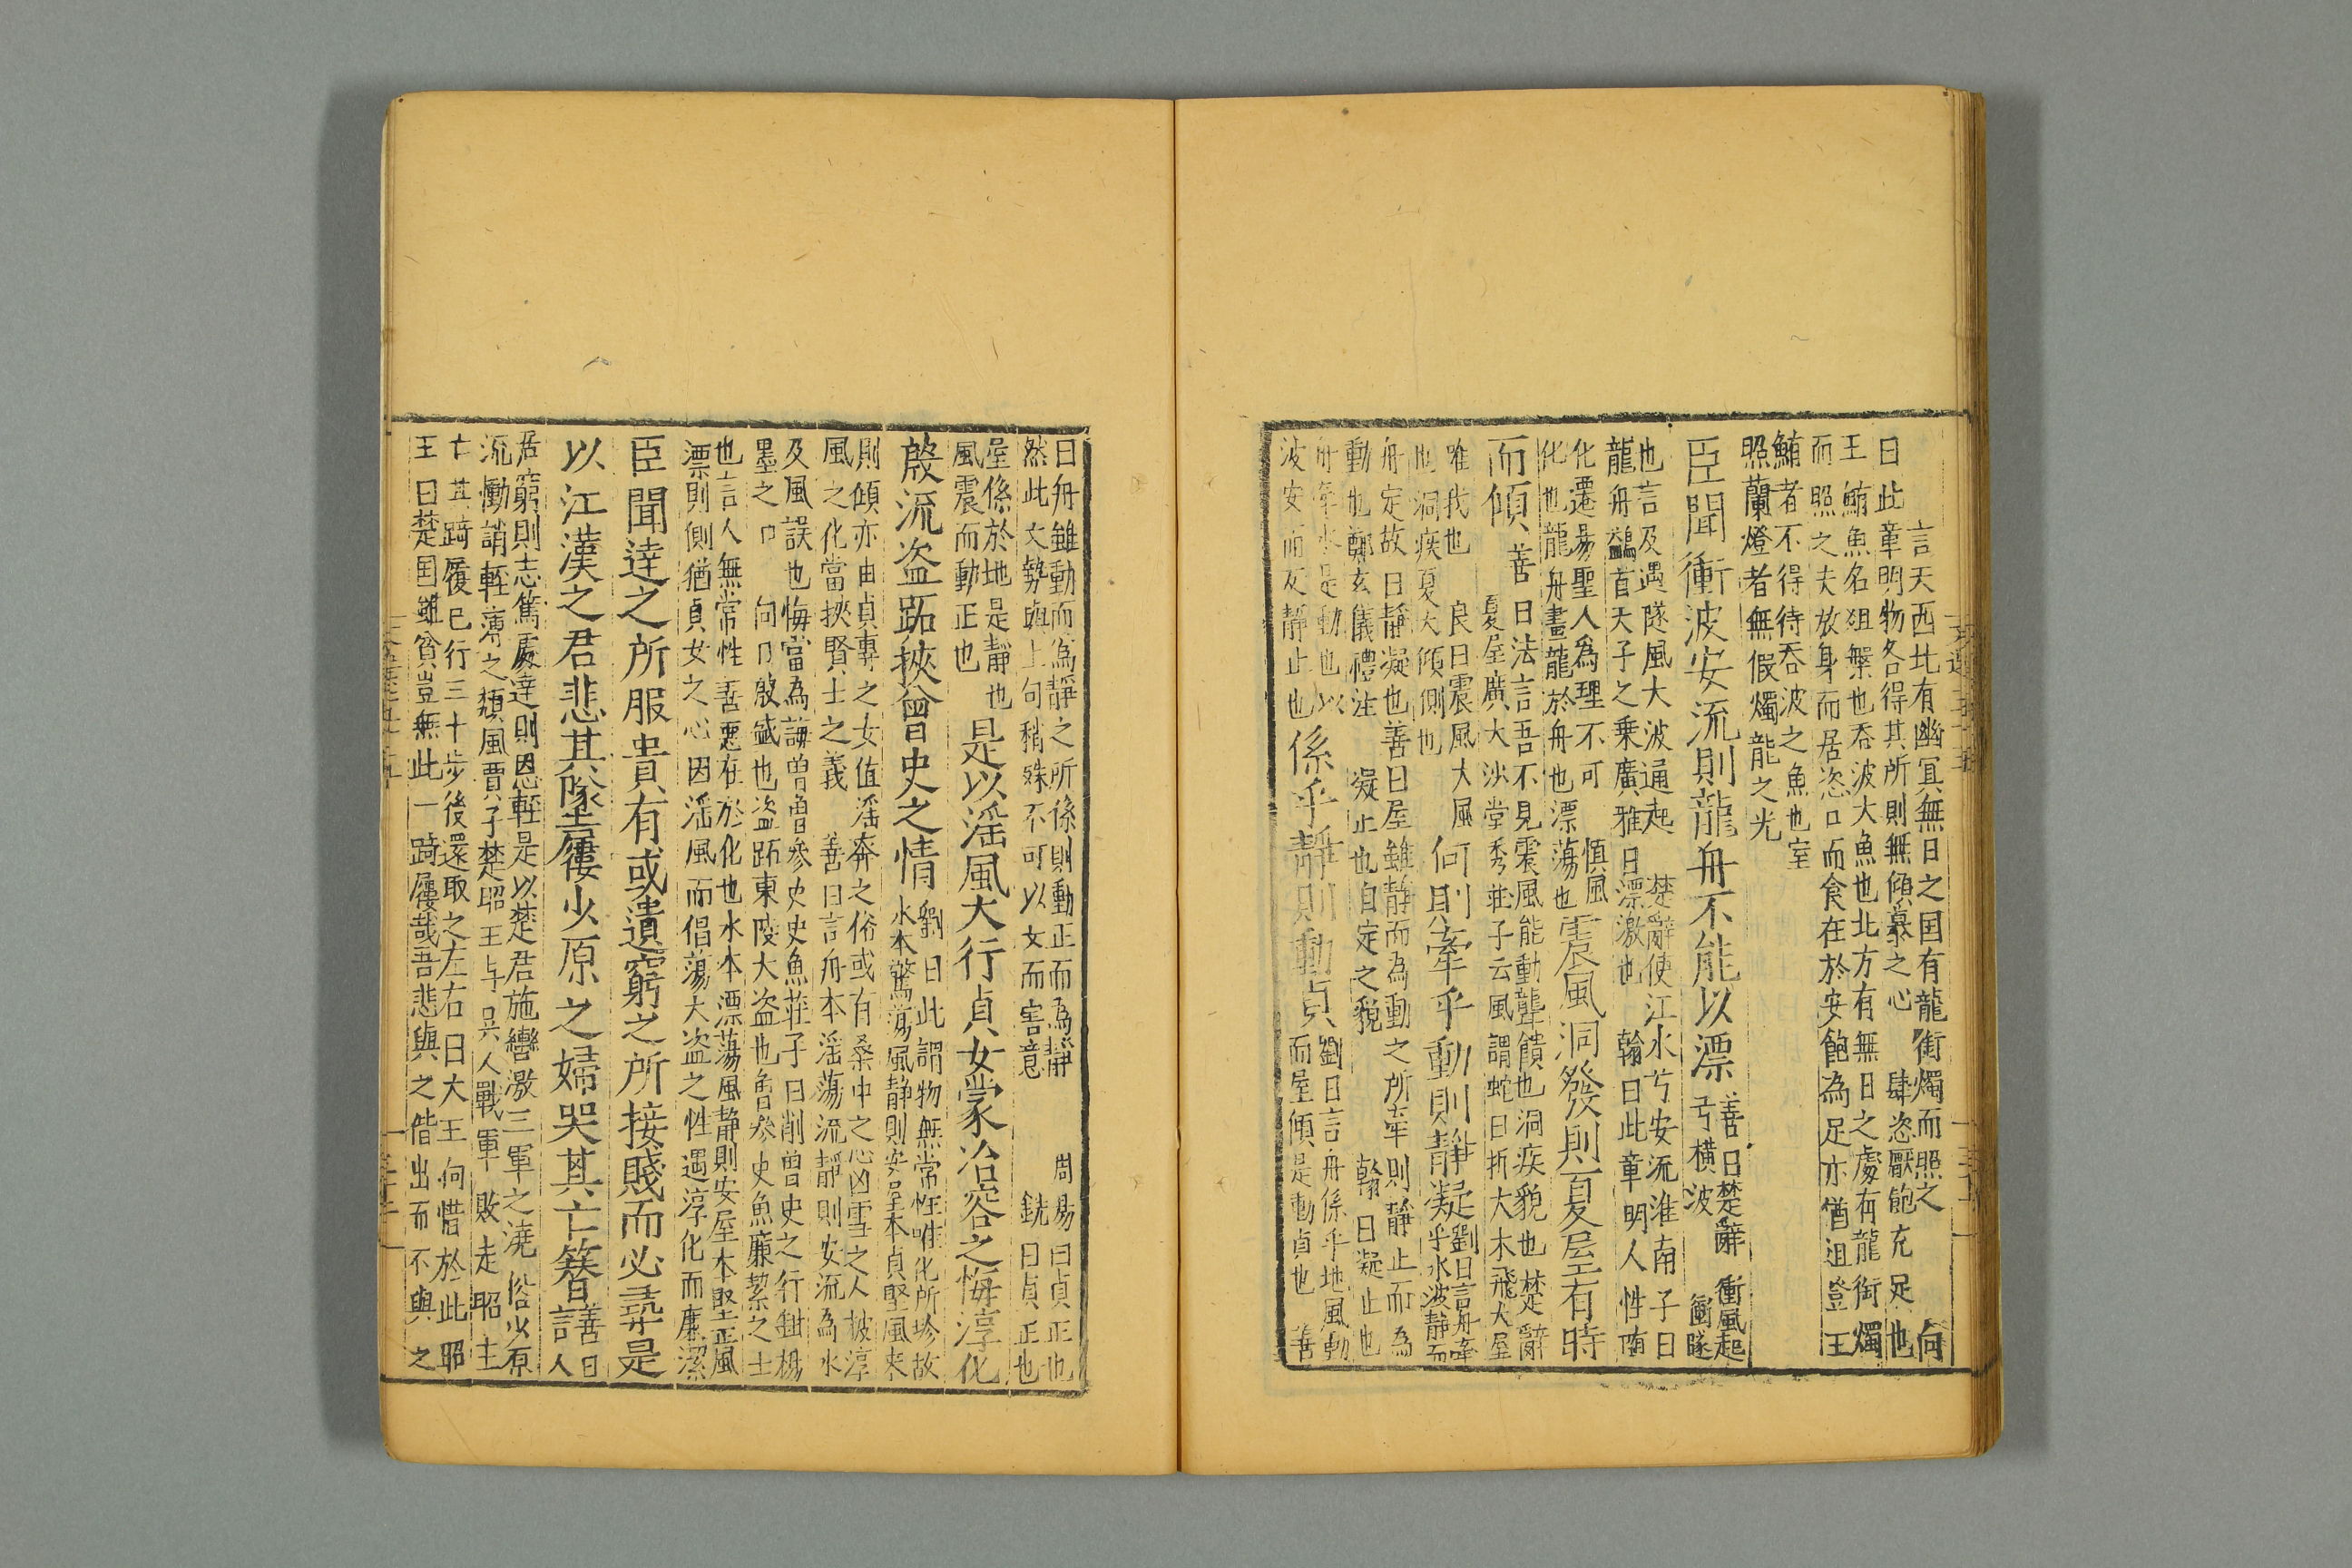 言天西北有幽冥無日之国有龍銜燭而照之　向
曰此章明物各得其所則無傾慕之心　肆恣厭飽充足也
王鮪魚名俎槃也吞波大魚也北方有無日之處有龍銜燭
而照之夫放身而居恣口而食在於安飽為足亦猶沮豈王
鮪者不得待吞波之魚也室
照蘭燈者無假燭龍之光
臣聞衝波安流則龍舟不能以漂
善曰楚辭　衝風起
兮橫波　衝隧
也言及遇隧風大波通起　楚辭使江水兮安流淮南子曰
龍舟鷁首天子之乗廣雅曰漂激也　翰曰此章明人性隨
化遷易聖人為理不可　慎風
化也龍舟畫龍於舟也漂蕩也
震風洞發則夏屋有時
而傾
善曰法言吾不見震風能動聾聵也洞疾貌也楚辭
夏屋廣大沙堂秀莊子云風謂蛇曰折大木飛大屋
唯我也　良曰震風大風
也洞疾夏大傾側也
何則牽乎動則靜凝
劉曰言舟牽
乎水波靜而
舟定故曰靜凝也善曰屋雖靜而為動之所牽則靜止而為
動也鄭玄儀禮注　凝止也自定之貌　翰曰凝止也
舟牽水是動也以
波安而反靜止也
係乎靜則動貞
劉曰言舟係乎地風動
而屋傾是動貞也　善
曰舟雖動而為靜之所係則動正而為靜　周易曰貞正也
然此文勢與上句稍殊不可以文而害意　銑曰貞正也
屋係於地是靜也
風震而動正也
是以滛風大行貞女蒙冶容之悔淳化
殷流盗跖挾曾史之情
劉曰此謂物無常性唯化所珍故
水本驚蕩風靜則安屋本貞堅風來
則傾亦由貞專之女值滛奔之俗或有桑中之心凶雪之人被淳
風之化當挾賢士之義　善曰言舟本滛蕩流靜則安流為水
及風誤也悔當為誨曾曾參史史魚莊子曰削曽史之行鉗楊
墨之口　向曰殷盛也盗跖東陵大盗也魯參史魚廉絜之士
也言人無常性善惡在於化也水本漂蕩風靜則安屋本堅正風
漂則側猶貞女之心因滛風而倡蕩大盗之性遇淳化而廉潔
臣聞達之所服貴有或遺窮之所接賤而必尋是
以江漢之君悲其墜屨少原之婦哭其亡簪
善曰
言人
居窮則志篤處達則恩輕是以楚君施轡激三軍之澆俗少原
流慟誚輕薄之頹風賈子楚昭王与吳人戰軍敗走昭王
亡其踦屨已行三十步後還取之左右曰大王何惜於此昭
王曰楚国雖貧豈無此一踦屨哉吾悲與之偕出而不與之